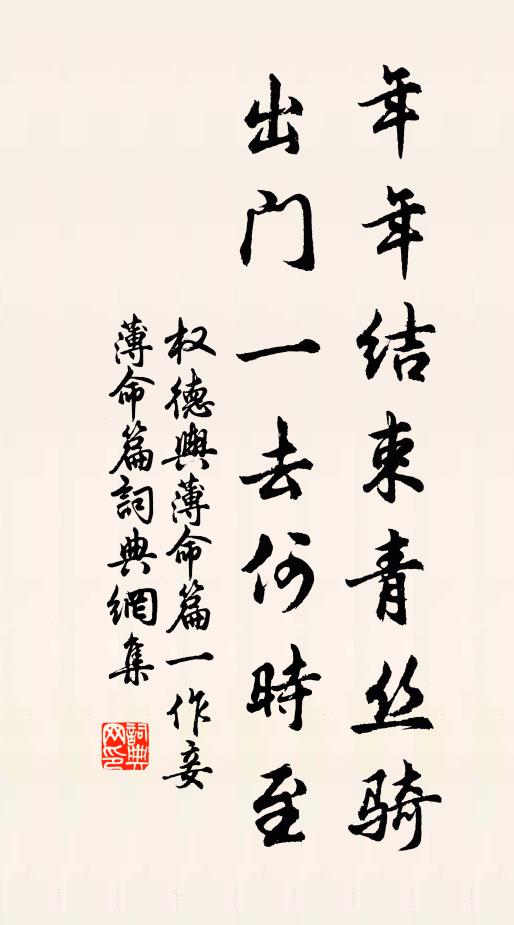 年年结束青丝骑
出门一去何時至
权德興薄命篇一作妾
薄命篇詞典網集
詞典网印